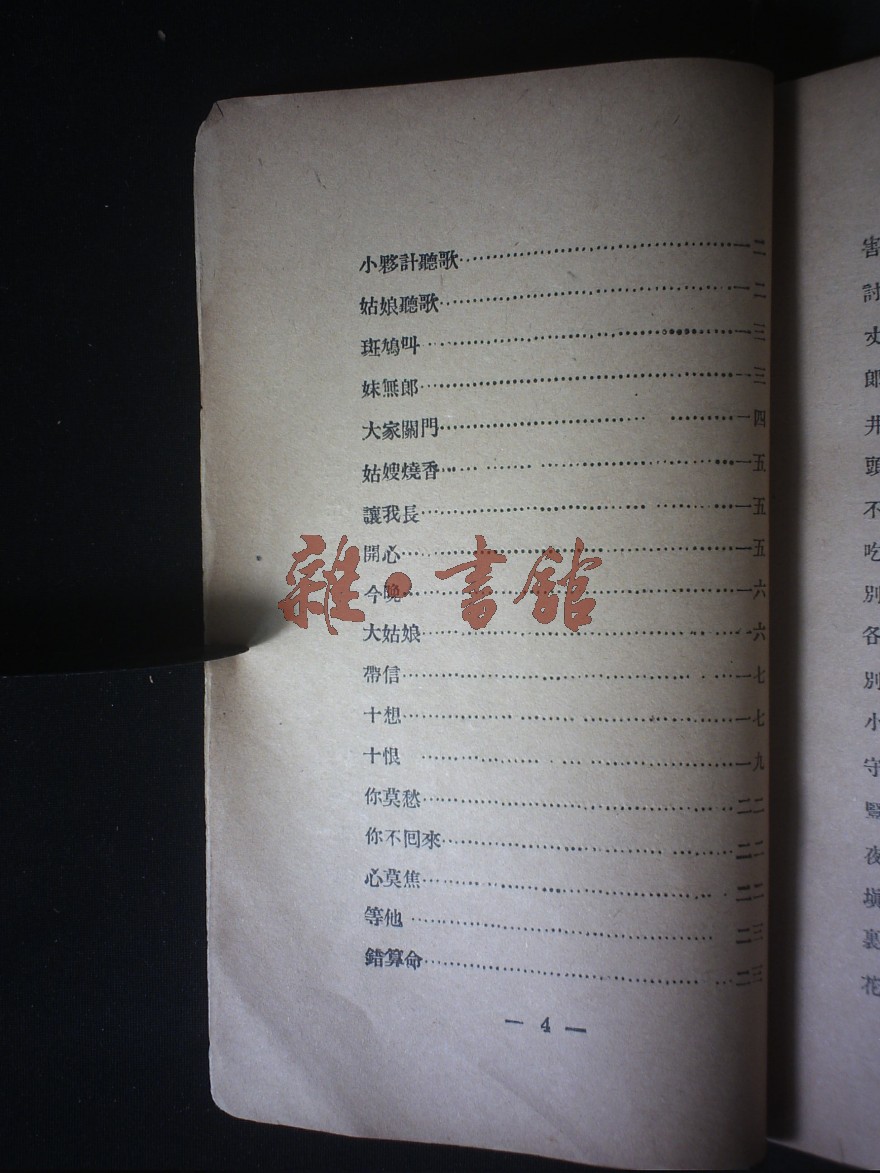 小夥計聽歌………一二
姑娘聽歌………一二
斑鳩叫………一三
妹無郎………一三
大家關門………一四
姑嫂燒香………一五
讓我長………一五
開心………一五
今晚………一六
大姑娘………一六
帶信………一七
十想………一七
十恨………一九
你莫愁………二二
你不囘來………二二
心莫焦………二二
等他………二三
錯算命………二三
— 4 —
雜·書館
害
討
丈
郎
井
頭
不
吃
別
各
別
小
守
夜
裏
花